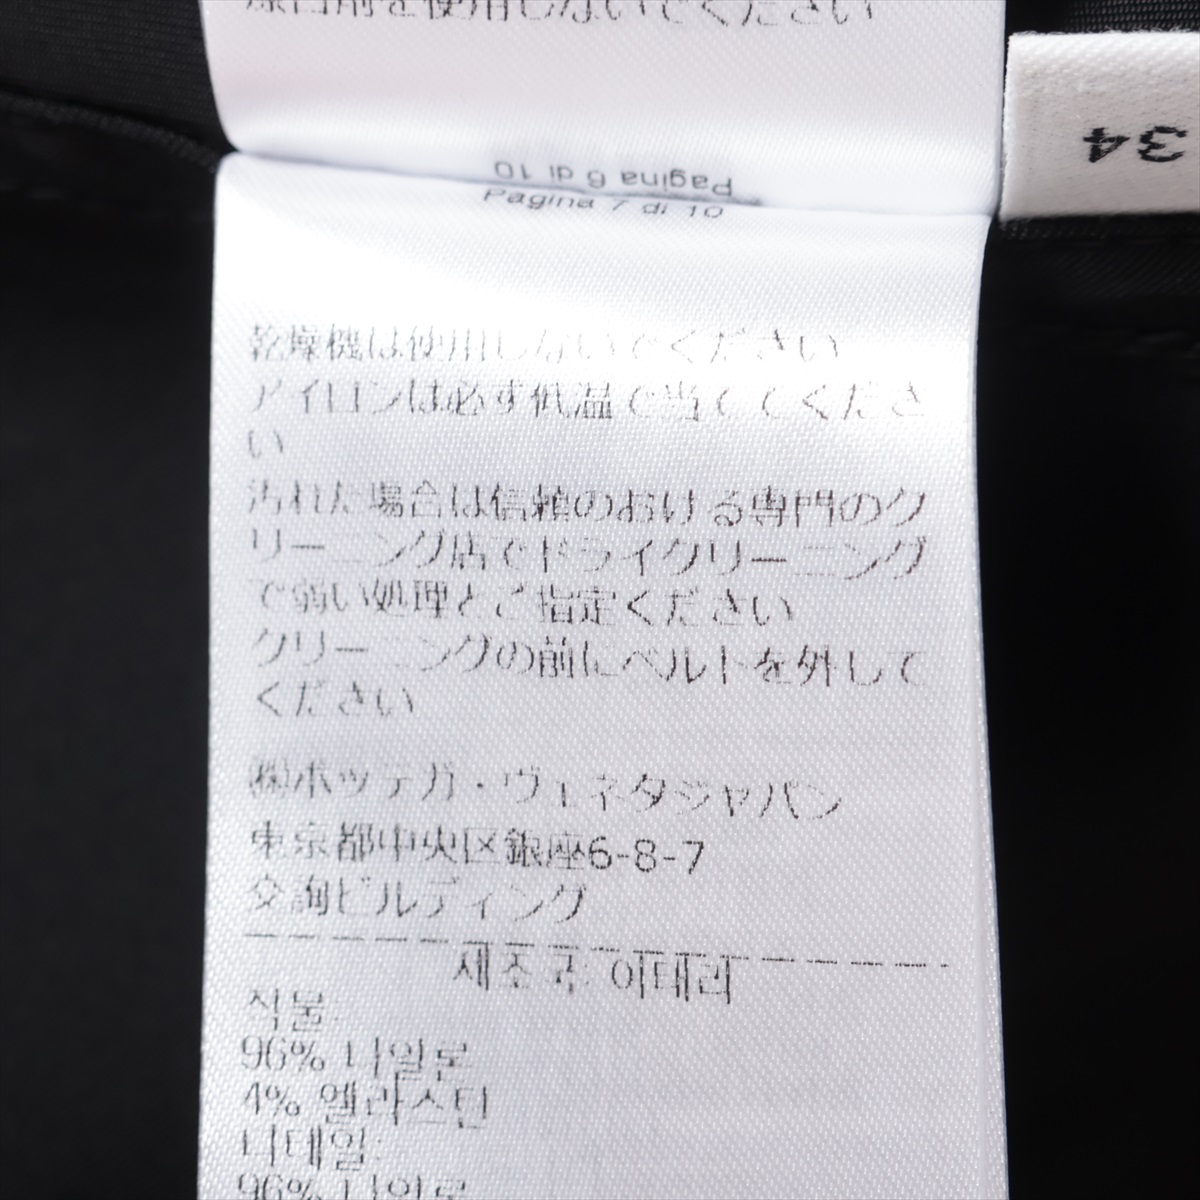 漂白剤を使用しないでください
34
Pagina 6 di 10
Pagina 7 di 10
乾燥機は使用しないでください
アイロンは必ず低温で当ててくださ
い
汚れた場合は信頼のおける専門のク
リーニング店でドライクリーニング
で弱い処理とご指定ください
クリーニングの前にベルトを外して
ください
㈱ボッテガ・ヴェネタジャパン
東京都中央区銀座6-8-7
交詢ビルディング
제조국: 이태리
직물:
96% 나일론
4% 엘라스틴
디테일:
96% 나일론